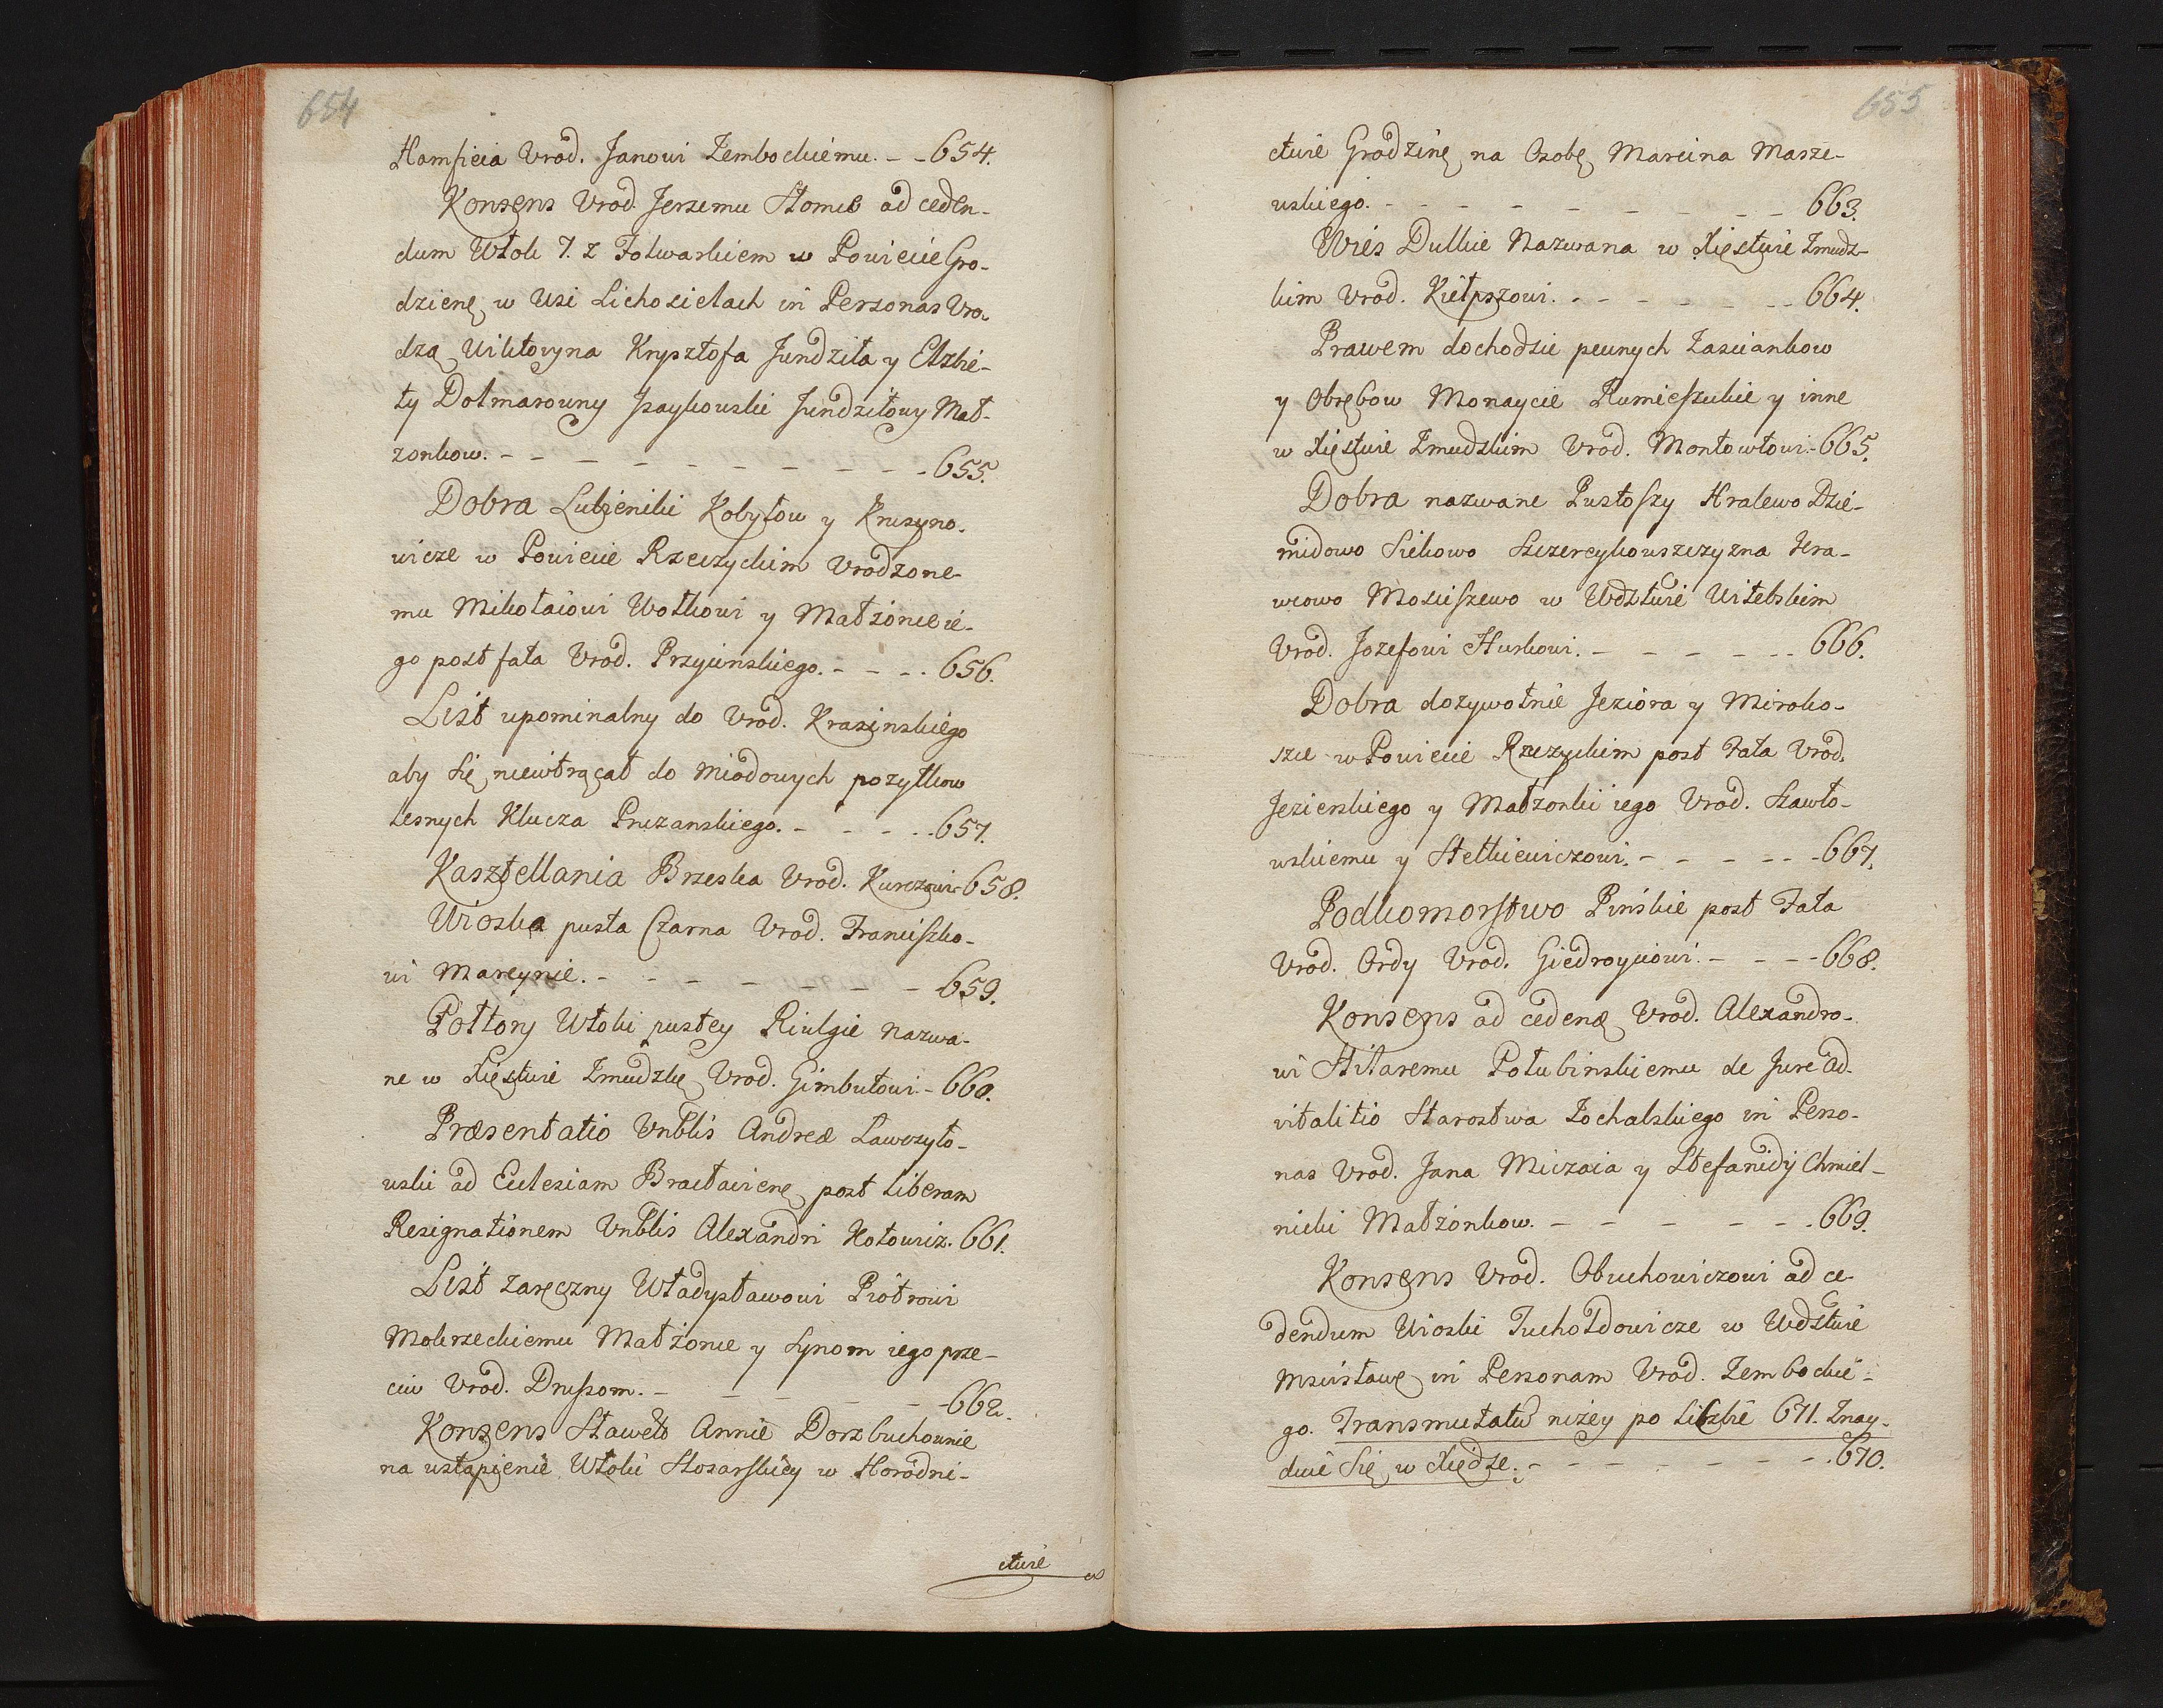 654
Hamsicia Urod. Janowi Zembockiemu. - - 654.
Konsens Urod. Jerzemu Homie ad ceden-
dum Włok 7. z Folwarkiem w Powiecie Gro-
dzienę w Wsi Lichosielach in Personas Uro-
dzą Wiktoryna Krysztofa Jundziła y Elzbie-
ty Dolmarowny Isaykowski Jundziłowy Mał-
zonkow. - - - - - - - - - 655.
Dobra Lubieniki Kobyłow y Krusyno-
wicze w Powiecie Rzeczyckim Urodzone-
mu Mikołaiowi Wołkowi y Małżonce ie-
go post fata Urod. Przyiemskiego. - - - - 656.
List upominalny do Urod. Krasinskiego
aby się niewtrącał do miodowych pozytkow
Lesnych Klucza Pruzanskiego. - - - - - 657.
Kasztellania Brzeska Urod. Kurczowi 658.
Wioska pusta Czarna Urod. Franciszko-
wi Marcynie. - - - - - - - 659.
Połtory Włoki pustey Riulgie nazwa-
ne w Xięstwie Zmudzkę Urod. Gimbutowi - 660.
Præsentatio Vnblis Andreæ Ławrzyło-
wski ad Ecclesiam Bractawienę post liberam
Resignationem Vnblis Alexandri Kotowicz. 661.
List zaręczny Władysławowi Piotrowi
Mokrzeckiemu Małżonce y Synom iego prze-
ciw Urod. Drussom. - - - - - 662.
Konsens Sławetę Annie Dorzbuchownie
na ustąpienie Włoki Hosarskiey w Horodni-
ctwie
655
ctwie Grodzinę na Osobę Marcina Masze-
wskiego. - - - - - - - - - 663.
Wies Dulkie Nazwana w Xięstwie Zmudz-
kim Urod. Kiełpszowi. - - - - - - 664.
Prawem dochodzie pewnych Zascianków
y Obrębow Monaycie Rumieszukie y inne
w Xięstwie Zmudzkim Urod. Montowtowi. - 665.
Dobra nazwane Pustoszy Hralewo Dzie-
midowo Siekowo Szczercykowszczyzna Kra-
wcowo Mosciszewo w Wdztwie Witebskim
Urod. Jozefowi Hurkowi. - - - - - - 666.
Dobra dozywotnie Jeziora y Miroko-
szce w Powiecie Rzeczyckim post Fata Urod.
Jezierskiego y Małzonki iego Urod. Szawło-
wskiemu y Stetkiewiczowi. - - - - - - 667.
Podkomorstwo Pinskie post Fata
Urod. Ordy Urod. Giedroyciowi. - - - - 668.
Konsens ad cedenđ Urod. Alexandro-
wi Hilaremu Połubinskiemu de Jure ad-
vitalitio Starostwa Zochalskiego in Perso-
nas Urod. Jana Miczaia y Stefanidy Chmiel-
nicki Małżonkow. - - - - - - - 669.
Konsens Urod. Obuchowiczowi ad ce-
dendum Wioski Tuchołdowicze w Wdztwie
Mscisławę in Personam Urod. Zembockie-
go. Transmutatū nizey po Liczbie 671. Znay-
duie Się w Xiędze. - - - - - - - - 670.